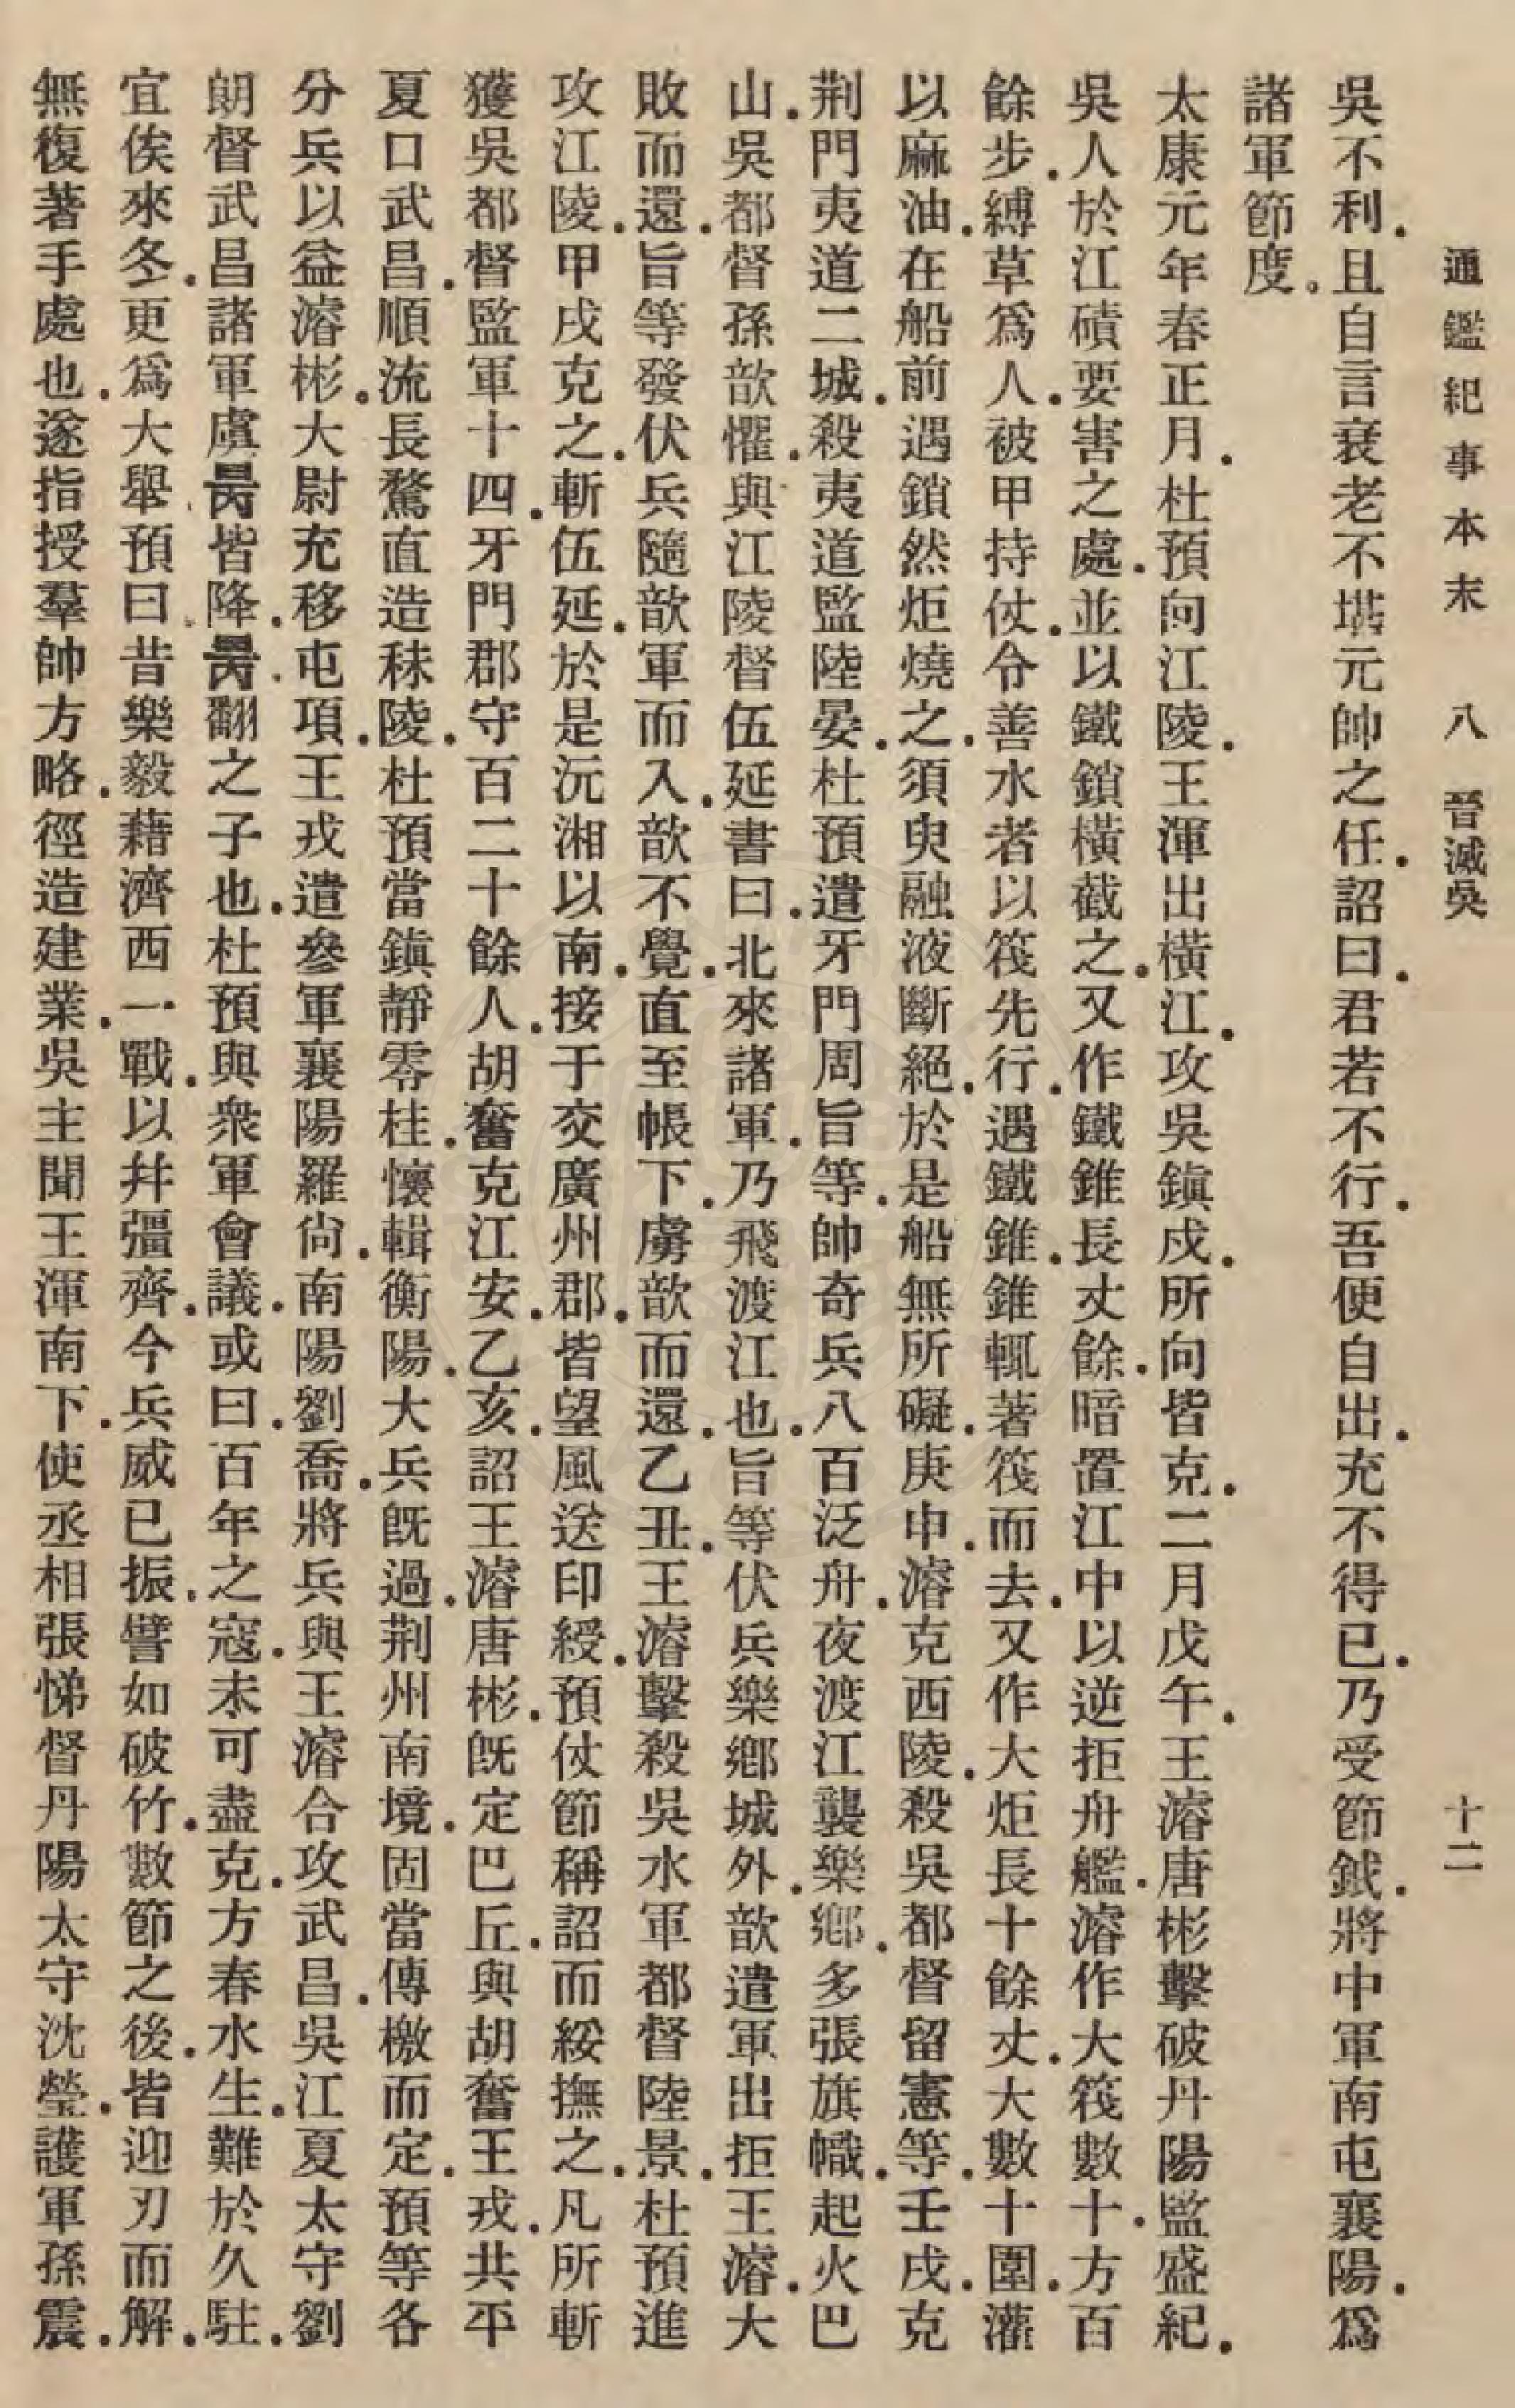 通鑑紀事本末 八 晉滅吳 十二
吳不利.且自言衰老不堪元帥之任.詔曰.君若不行.吾便自出.充不得已.乃受節鉞.將中軍南屯襄陽.爲
諸軍節度。
太康元年春正月.杜預向江陵.王渾出橫江.攻吳鎭戍.所向皆克.二月戊午.王濬唐彬擊破丹陽監盛紀.
吳人於江磧要害之處.並以鐵鎖橫截之.又作鐵錐長丈餘.暗置江中以逆拒舟艦.濬作大筏數十.方百
餘步.縛草爲人.被甲持仗.令善水者以筏先行.遇鐵錐.錐輒著筏而去.又作大炬長十餘丈.大數十圍.灌
以麻油.在船前遇鎖然炬燒之.須臾融液斷絕.於是船無所礙.庚申.濬克西陵.殺吳都督留憲等.壬戌.克
荆門夷道二城.殺夷道監陸晏.杜預遣牙門周旨等.帥奇兵八百泛舟.夜渡江襲樂鄉.多張旗幟.起火巴
山.吳都督孫歆懼.與江陵督伍延書曰.北來諸軍.乃飛渡江也.旨等伏兵樂鄉城外.歆遣軍出拒王濬.大
敗而還.旨等發伏兵隨歆軍而入.歆不覺.直至帳下.虜歆而還.乙丑.王濬擊殺吳水軍都督陸景.杜預進
攻江陵.甲戌克之.斬伍延.於是沅湘以南.接于交廣州郡.皆望風送印綬.預仗節稱詔而綏撫之.凡所斬
獲吳都督監軍十四.牙門郡守百二十餘人.胡奮克江安.乙亥.詔王濬唐彬.旣定巴丘.與胡奮王戎.共平
夏口武昌.順流長騖直造秣陵.杜預當鎭靜零桂.懷輯衡陽.大兵旣過.荆州南境.固當傳檄而定.預等各
分兵以益濬彬.大尉充移屯項.王戎遣參軍襄陽羅尙.南陽劉喬.將兵與王濬合攻武昌.吳江夏太守劉
朗督武昌諸軍虞昺皆降.昺翻之子也.杜預與衆軍會議.或曰.百年之寇.未可盡克.方春水生.難於久駐.
宜俟來冬.更爲大舉.預曰.昔樂毅藉濟西一戰.以幷彊齊.今兵威已振.譬如破竹.數節之後.皆迎刃而解.
無復著手處也.遂指授羣帥方略.徑造建業.吳主聞王渾南下.使丞相張悌督丹陽太守沈瑩.護軍孫震.